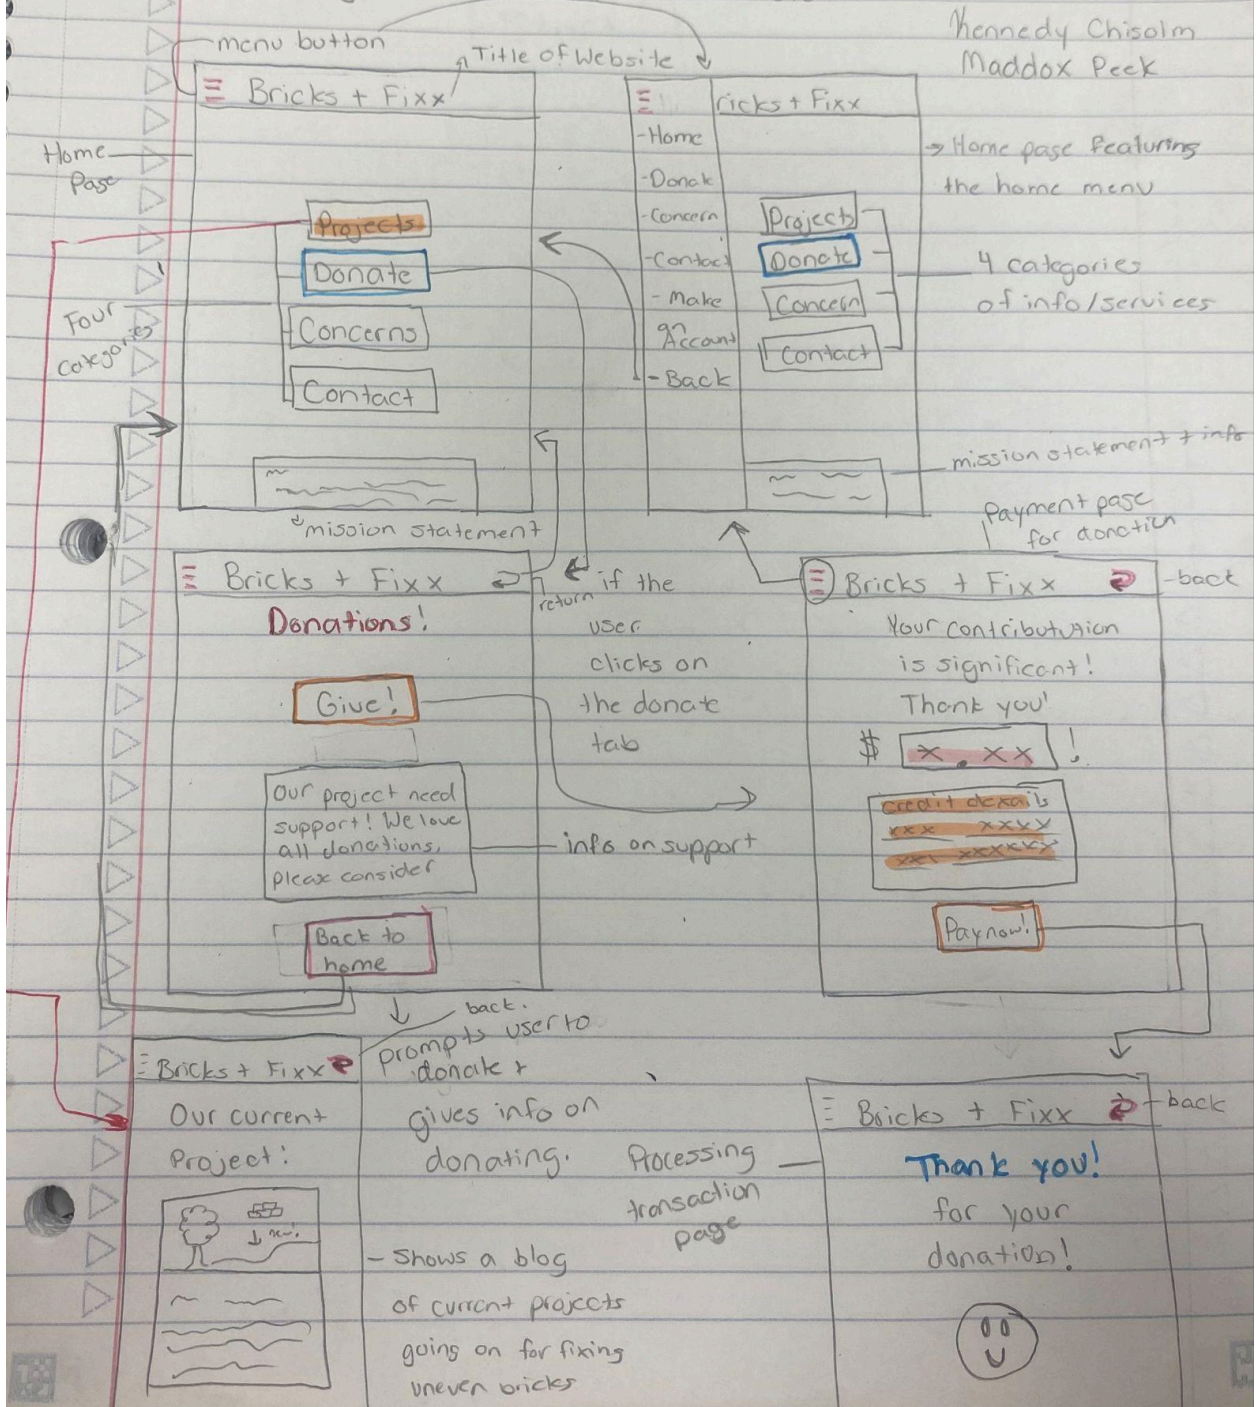 Kennedy Chisolm
Maddox Peek
menu button
Title of Website
Bricks + Fixx
Home
Page
Projects
Donate
Concerns
Contact
Four
categories
mission statement
ricks + Fixx
-Home
-Donate
-Concern
-Contact
- Make
an
Account
- Back
Projects
Donate
Concern
Contact
Home page featuring
the home menu
4 categories
of info/services
mission statement + info
Bricks + Fixx
return
Donations!
Give!
Our project need
support! We love
all donations,
please consider
Back to
home
if the
user
clicks on
the donate
tab
info on support
Payment page
for donation
Bricks + Fixx
-back
Your contributusion
is significant!
Thank you!
$ x.xx !
credit details
xxx xxxx
xxx xxxxxx
Pay now!
back.
prompts user to
donate +
gives info on
donating.
Bricks + Fixx
Our current
Project:
new!
- Shows a blog
of current projects
going on for fixing
uneven bricks
Processing
transaction
page
Bricks + Fixx
-back
Thank you!
for your
donation!